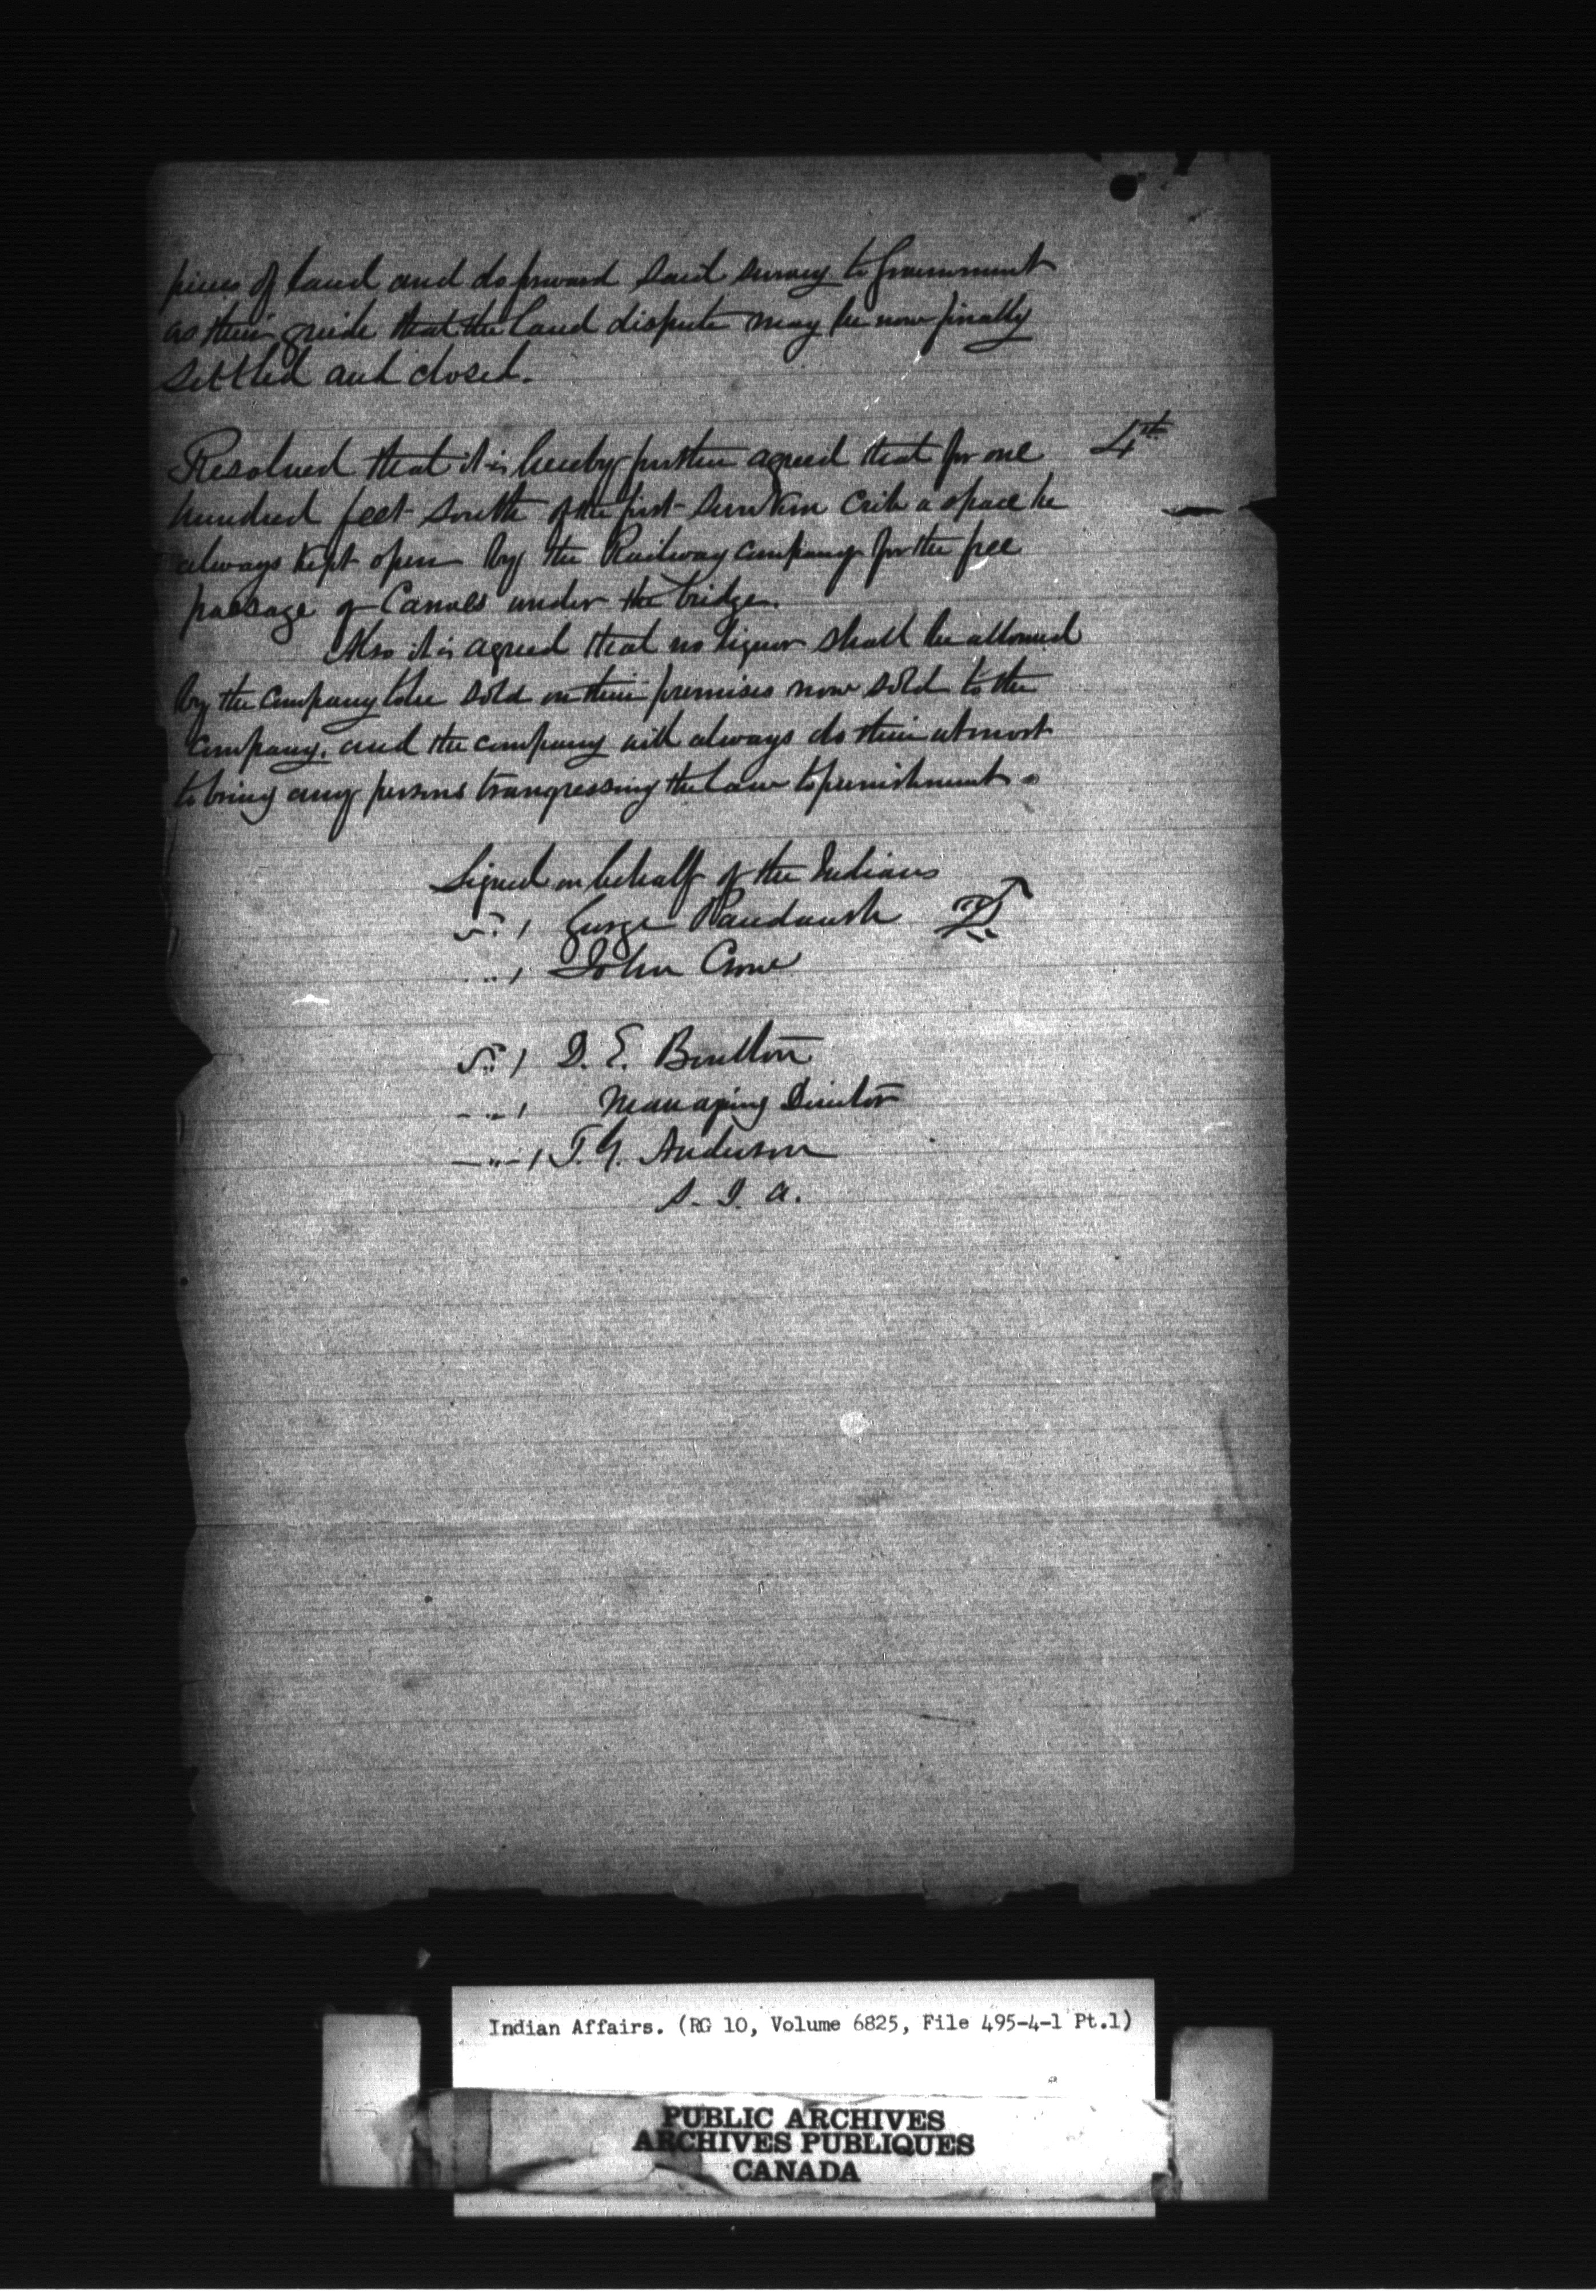 pieces of land and do forward said survey to Government
as their guide that the land dispute may be now finally
settled and closed.
Resolved that it is hereby further agreed that for one 4th
hundred feet south of the first sunken crib a space be
always kept open by the Railway company for the free
passage of Canoes under the bridge.
Also it is agreed that no liquor shall be allowed
by the company to be sold on their premises now sold to the
Company, and the company will always do their utmost
to bring any persons trangressing the law to punishment.
Signed on behalf of the Indians
George Paudaush
John Crow
D. E. Boulton
Managing Director
T. G. Anderson
S. I. A.
Indian Affairs. (RG 10, Volume 6825, File 495-4-1 Pt.1)
PUBLIC ARCHIVES
ARCHIVES PUBLIQUES
CANADA